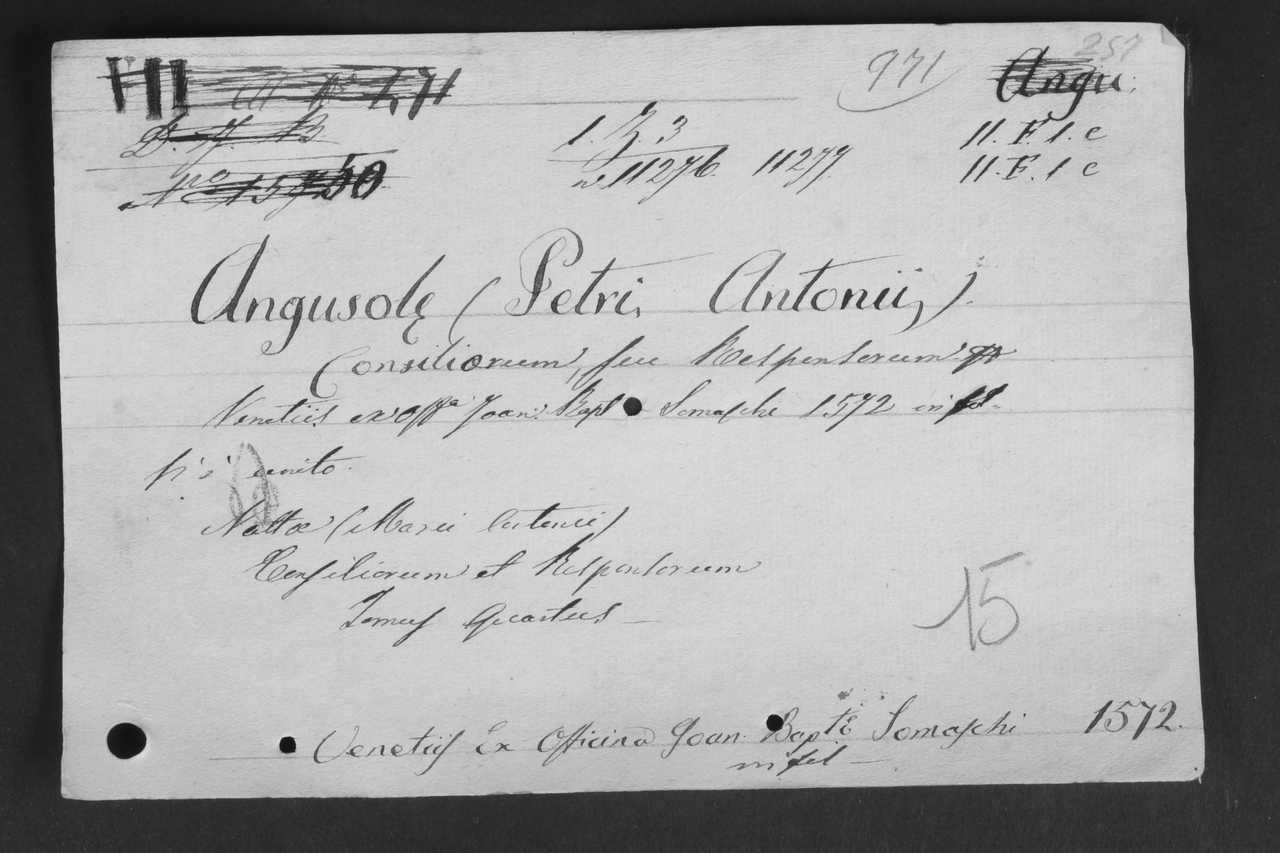 971
257
Angu.
1. Z. 3
11. F. 1. c
nº 11276. 11277.
11. F. 1 c
Angusolę (Petri, Antonii,).
Consiliorum, seu Responsorum
Venetiis ex offᵃ Joan: Bapt Somaschi 1572 in fol.
unito.
Nattæ (Marci Antonii)
Consiliorum et Responsorum
Tomus Quartus _
15
Venetiis Ex Officina Joan. Baptę Somaschi 1572.
in fol _